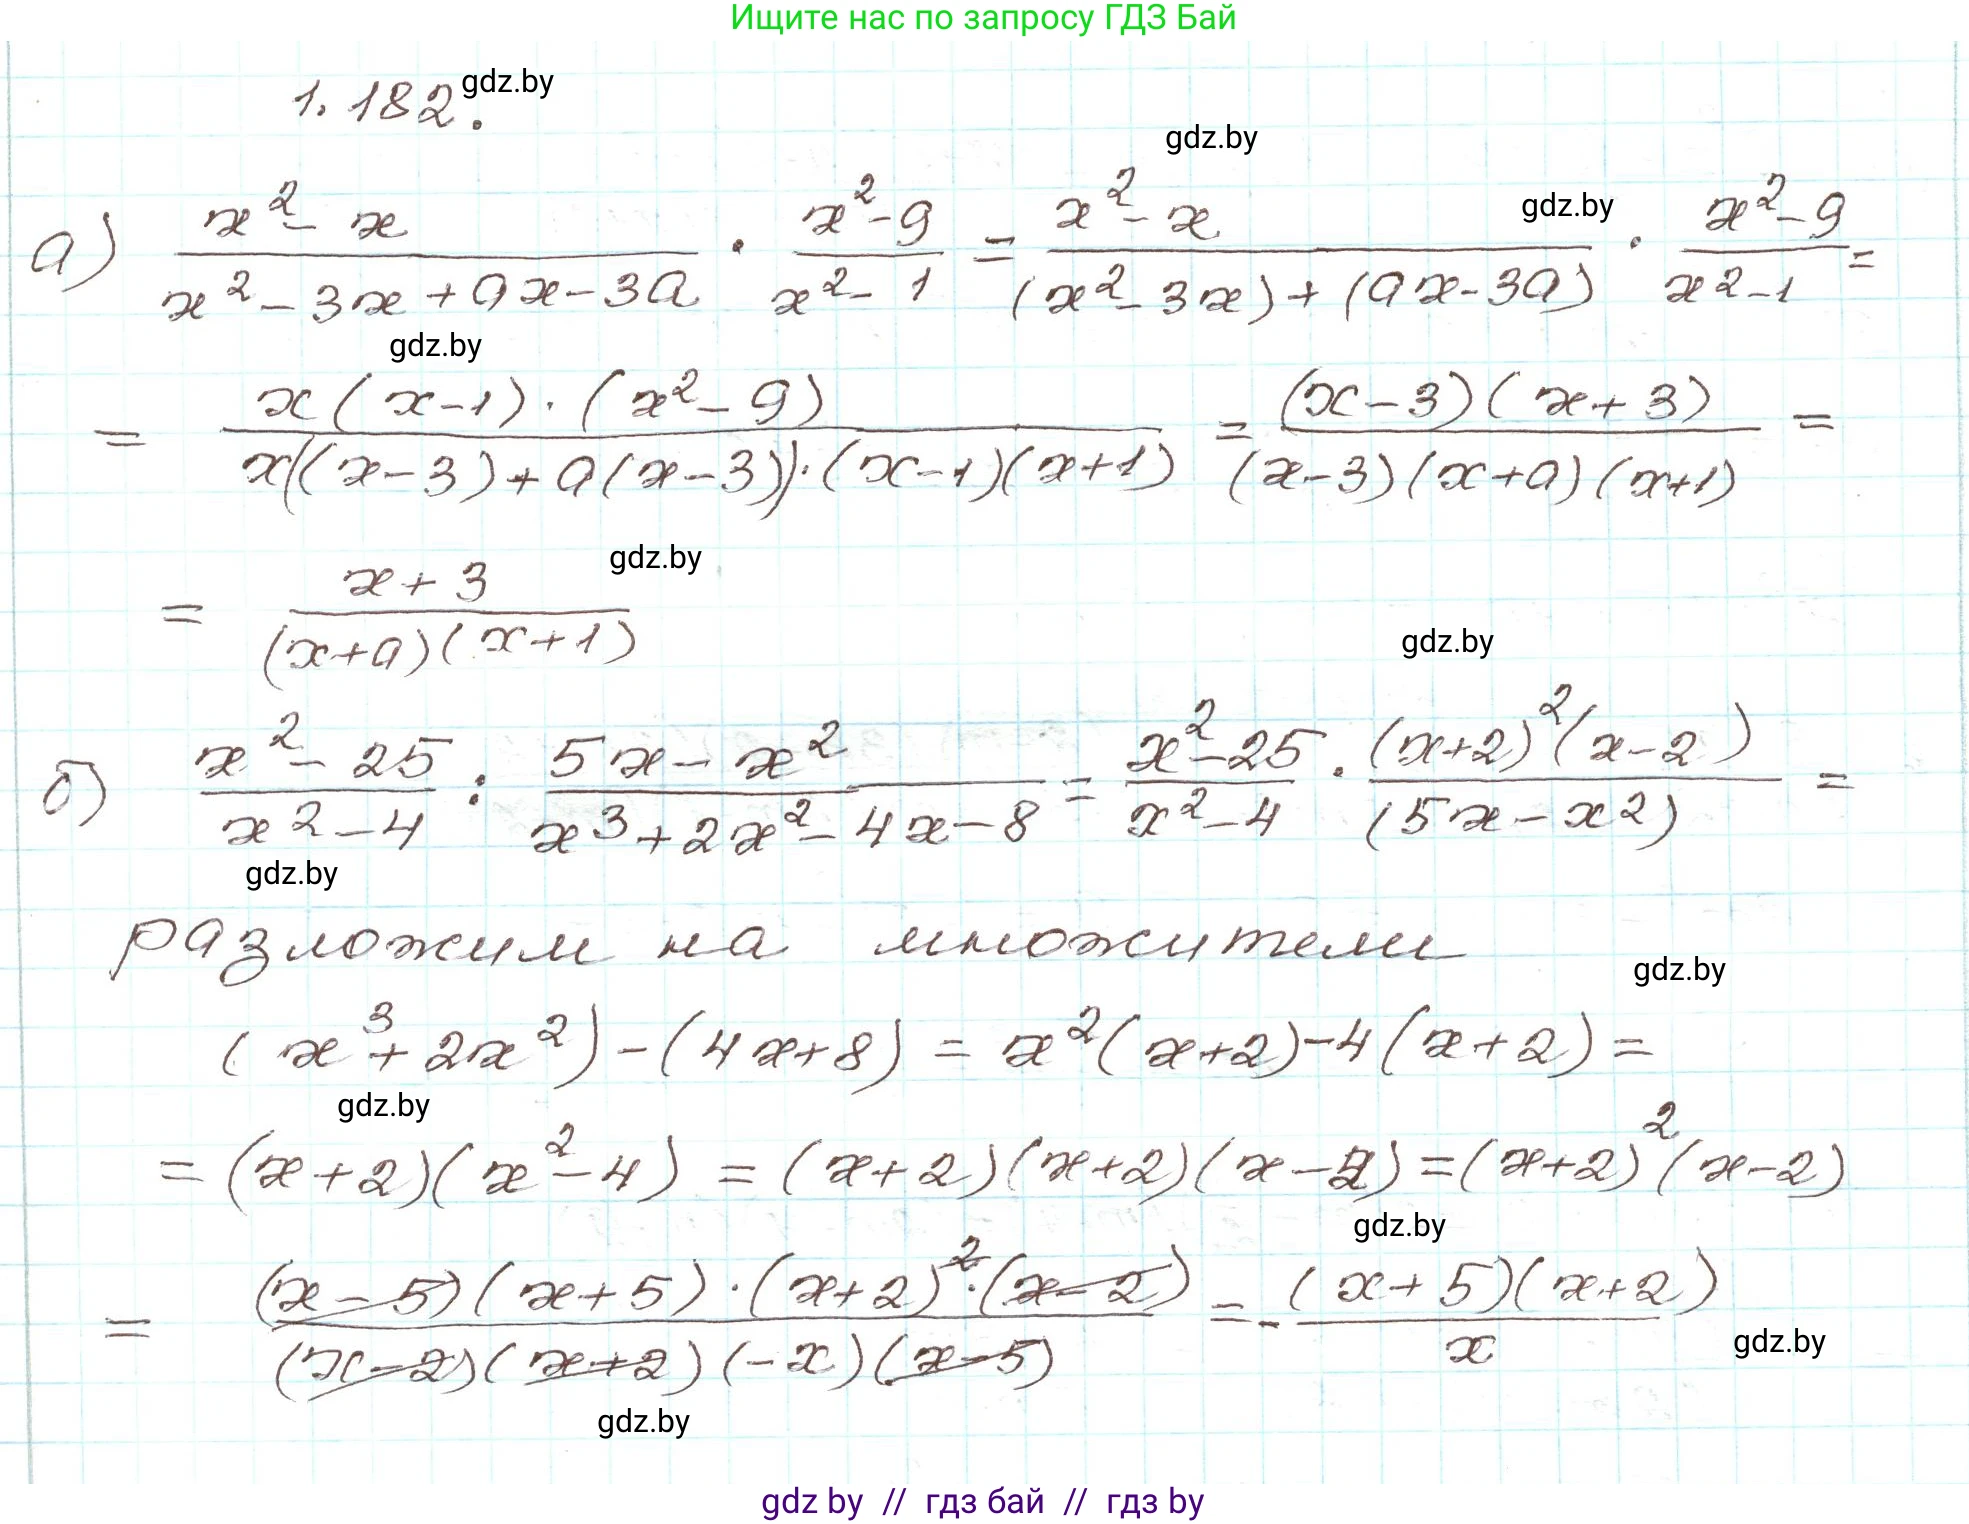 Ищите нас по запросу ГДЗ Бай
1.182. gdz.by
gdz.by
а) (x² - x)/(x² - 3x + ax - 3a) · (x² - 9)/(x² - 1) = (x² - x)/((x² - 3x) + (ax - 3a)) · (x² - 9)/(x² - 1) =
gdz.by
gdz.by
= (x(x-1)·(x² - 9))/(x((x-3) + a(x-3))·(x-1)(x+1)) = ((x-3)(x+3))/((x-3)(x+a)(x+1)) =
gdz.by
= (x+3)/((x+a)(x+1))
gdz.by
б) (x² - 25)/(x² - 4) : (5x - x²)/(x³ + 2x² - 4x - 8) = (x² - 25)/(x² - 4) · ((x+2)²(x-2))/((5x - x²)) =
gdz.by
разложим на множители
gdz.by
(x³ + 2x²) - (4x + 8) = x²(x+2) - 4(x+2) =
gdz.by
= (x+2)(x² - 4) = (x+2)(x+2)(x-2) = (x+2)²(x-2)
gdz.by
= ((x-5)(x+5)·(x+2)²·(x-2))/((x-2)(x+2)(-x)(x-5)) = - ((x+5)(x+2))/x
gdz.by
gdz.by
gdz by // гдз бай // гдз by